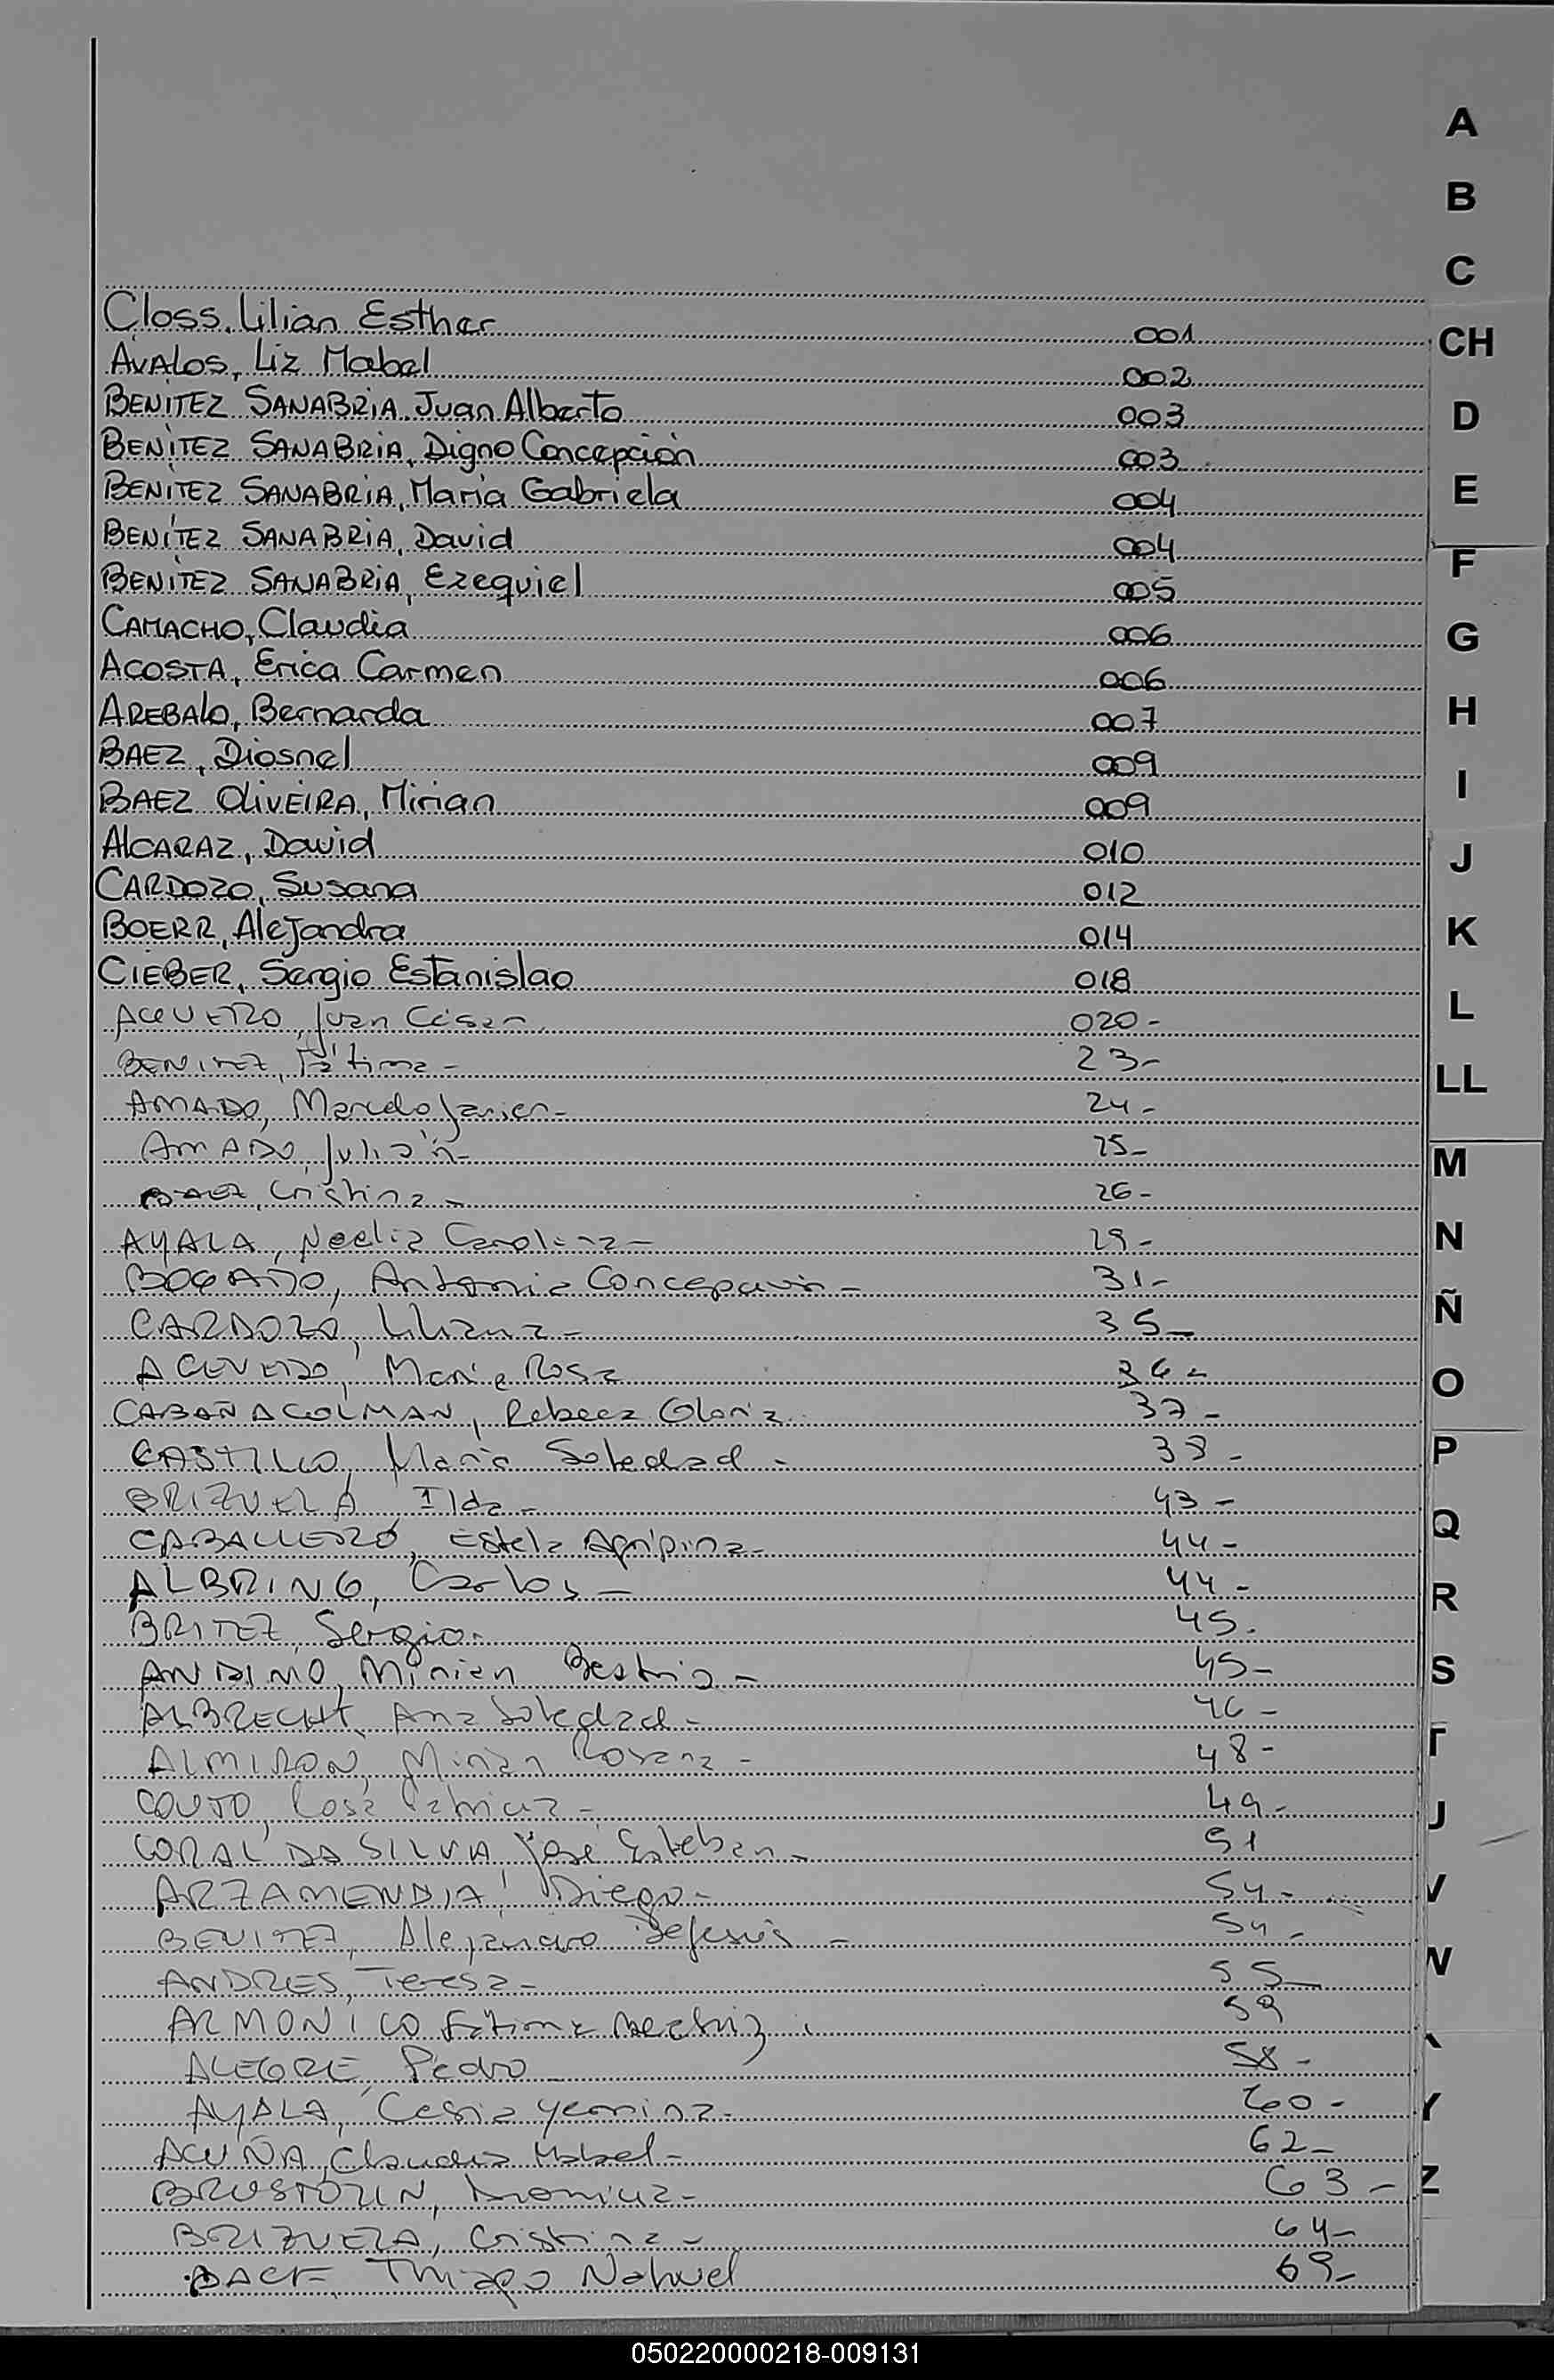 Closs, Lilian Esther 001
AVALOS, Liz Mabel 002
BENÍTEZ SANABRIA, Juan Alberto 003
BENÍTEZ SANABRIA, Digno Concepción 003
BENÍTEZ SANABRIA, María Gabriela 004
BENÍTEZ SANABRIA, David 004
BENÍTEZ SANABRIA, Ezequiel 005
CAMACHO, Claudia 006
ACOSTA, Erica Carmen 006
AREBALO, Bernarda 007
BAEZ, Diosnel 009
BAEZ OLIVEIRA, Mirian 009
ALCARAZ, David 010
CARDOZO, Susana 012
BOERR, Alejandra 014
CIEBER, Sergio Estanislao 018
Juan César 020-
BENITEZ, Fátima - 23-
AMADO, Marcelo Javier- 24-
AMADO, Julián- 25-
BAEZ, Cristina- 26-
AYALA, Noelia Carolina- 29-
BOGADO, Antonia Concepción- 31-
CARDOZO, Liliana- 35-
ACEVEDO, María Rosa 36-
CABAÑA COLMAN, Rebeca Gloria 37-
CASTILLO, María Soledad - 38-
BRIZUELA Ilda- 43-
CABALLERO, Estela Agripina- 44-
ALBRING, Carlos- 44-
BRITEZ, Sergio- 45.
ANDINO, Mirian Beatriz- 45-
ALBRECHT, Ana Soledad- 46-
ALMIRON, Mirian Rosana- 48-
COUTO, Patricia- 49-
CORAL DA SILVA, José Esteban- 51
ARZAMENDIA, Diego- 54-
BENITEZ, Alejandro Dejesús - 54-
ANDRES, Teresa- 55-
ARMONICO Fátima Beatriz 59
ALEGRE, Pedro 58-
AYALA, Cesia Yemina- 60-
ACUÑA, Claudia Mabel- 62-
63-
BRIZUELA, Cristina- 64-
Thiago Nahuel 69-
A
B
C
CH
D
E
F
G
H
I
J
K
L
LL
M
N
Ñ
O
P
Q
R
S
T
V
Y
Z
050220000218-009131